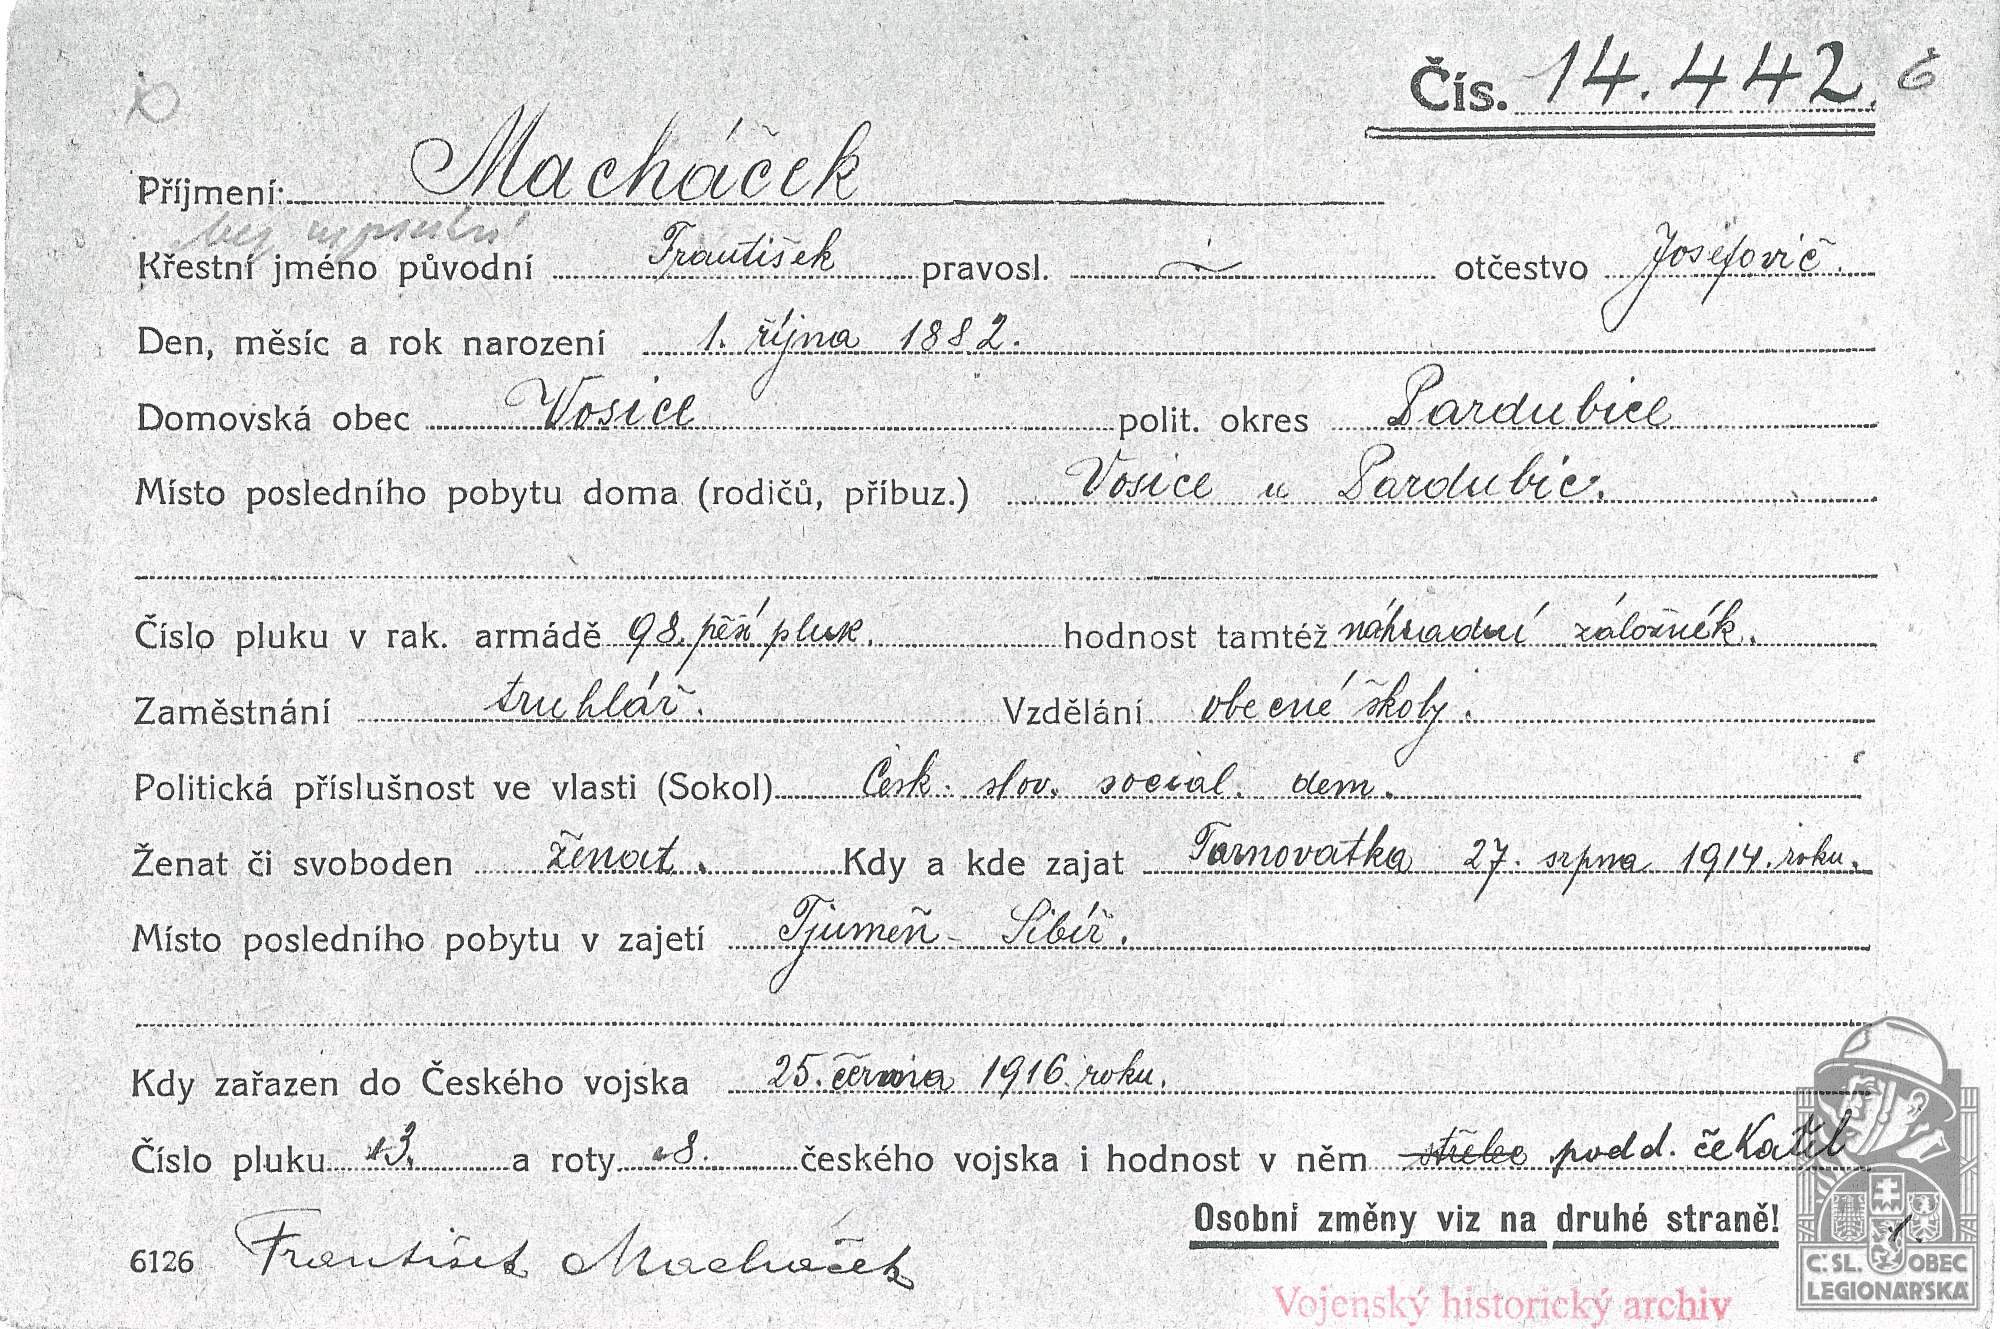 Čís. 14.442.
Příjmení: Macháček
Křestní jméno původní František pravosl. – otčestvo Josefovič.
Den, měsíc a rok narození 1. října 1882.
Domovská obec Vosice polit. okres Pardubice
Místo posledního pobytu doma (rodičů, příbuz.) Vosice u Pardubic.
Číslo pluku v rak. armádě 98. pěší pluk. hodnost tamtéž náhradní záložník.
Zaměstnání truhlář. Vzdělání obecné školy.
Politická příslušnost ve vlasti (Sokol) Česk. slov. social. dem.
Ženat či svoboden ženat. Kdy a kde zajat Tarnovatka 27. srpna 1914. roku.
Místo posledního pobytu v zajetí Tjumeň - Sibiř.
Kdy zařazen do Českého vojska 25. června 1916. roku.
Číslo pluku 3. a roty 8. českého vojska i hodnost v něm střelec podd. čekatel
Osobní změny viz na druhé straně! 1.
6126 František Macháček
Vojenský historický archiv
Č.SL. OBEC
LEGIONÁŘSKÁ